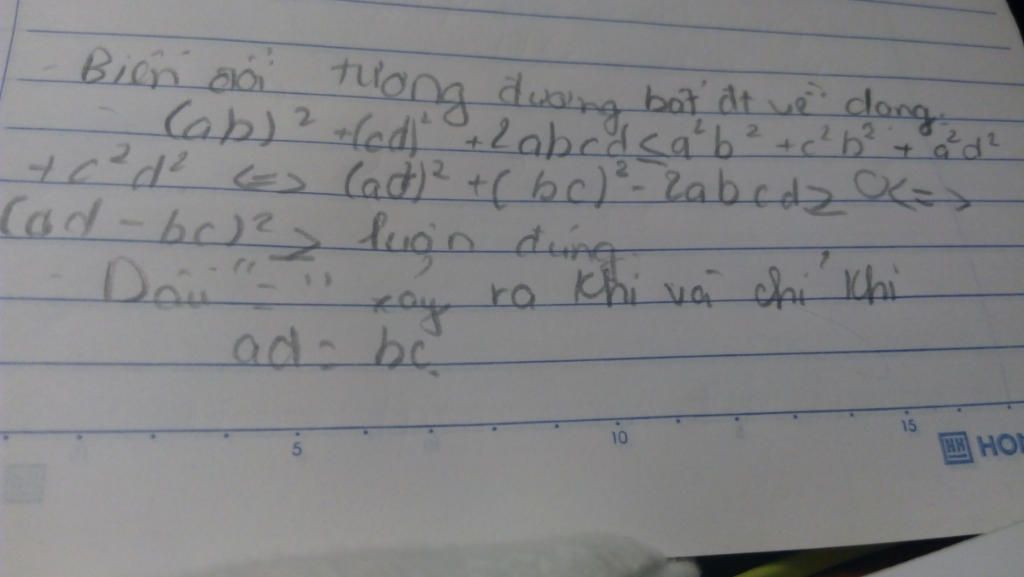 Biến đổi tương đương bất đt về dạng.
(ab)² + (cd)² + 2abcd ≤ a²b² + c²b² + a²d²
+ c²d² <=> (ad)² + (bc)² - 2abcd ≥ 0 <=>
(ad - bc)² ≥ luôn đúng
Dấu "=" xảy ra khi và chỉ khi
ad = bc.
5 10 15
HH HON